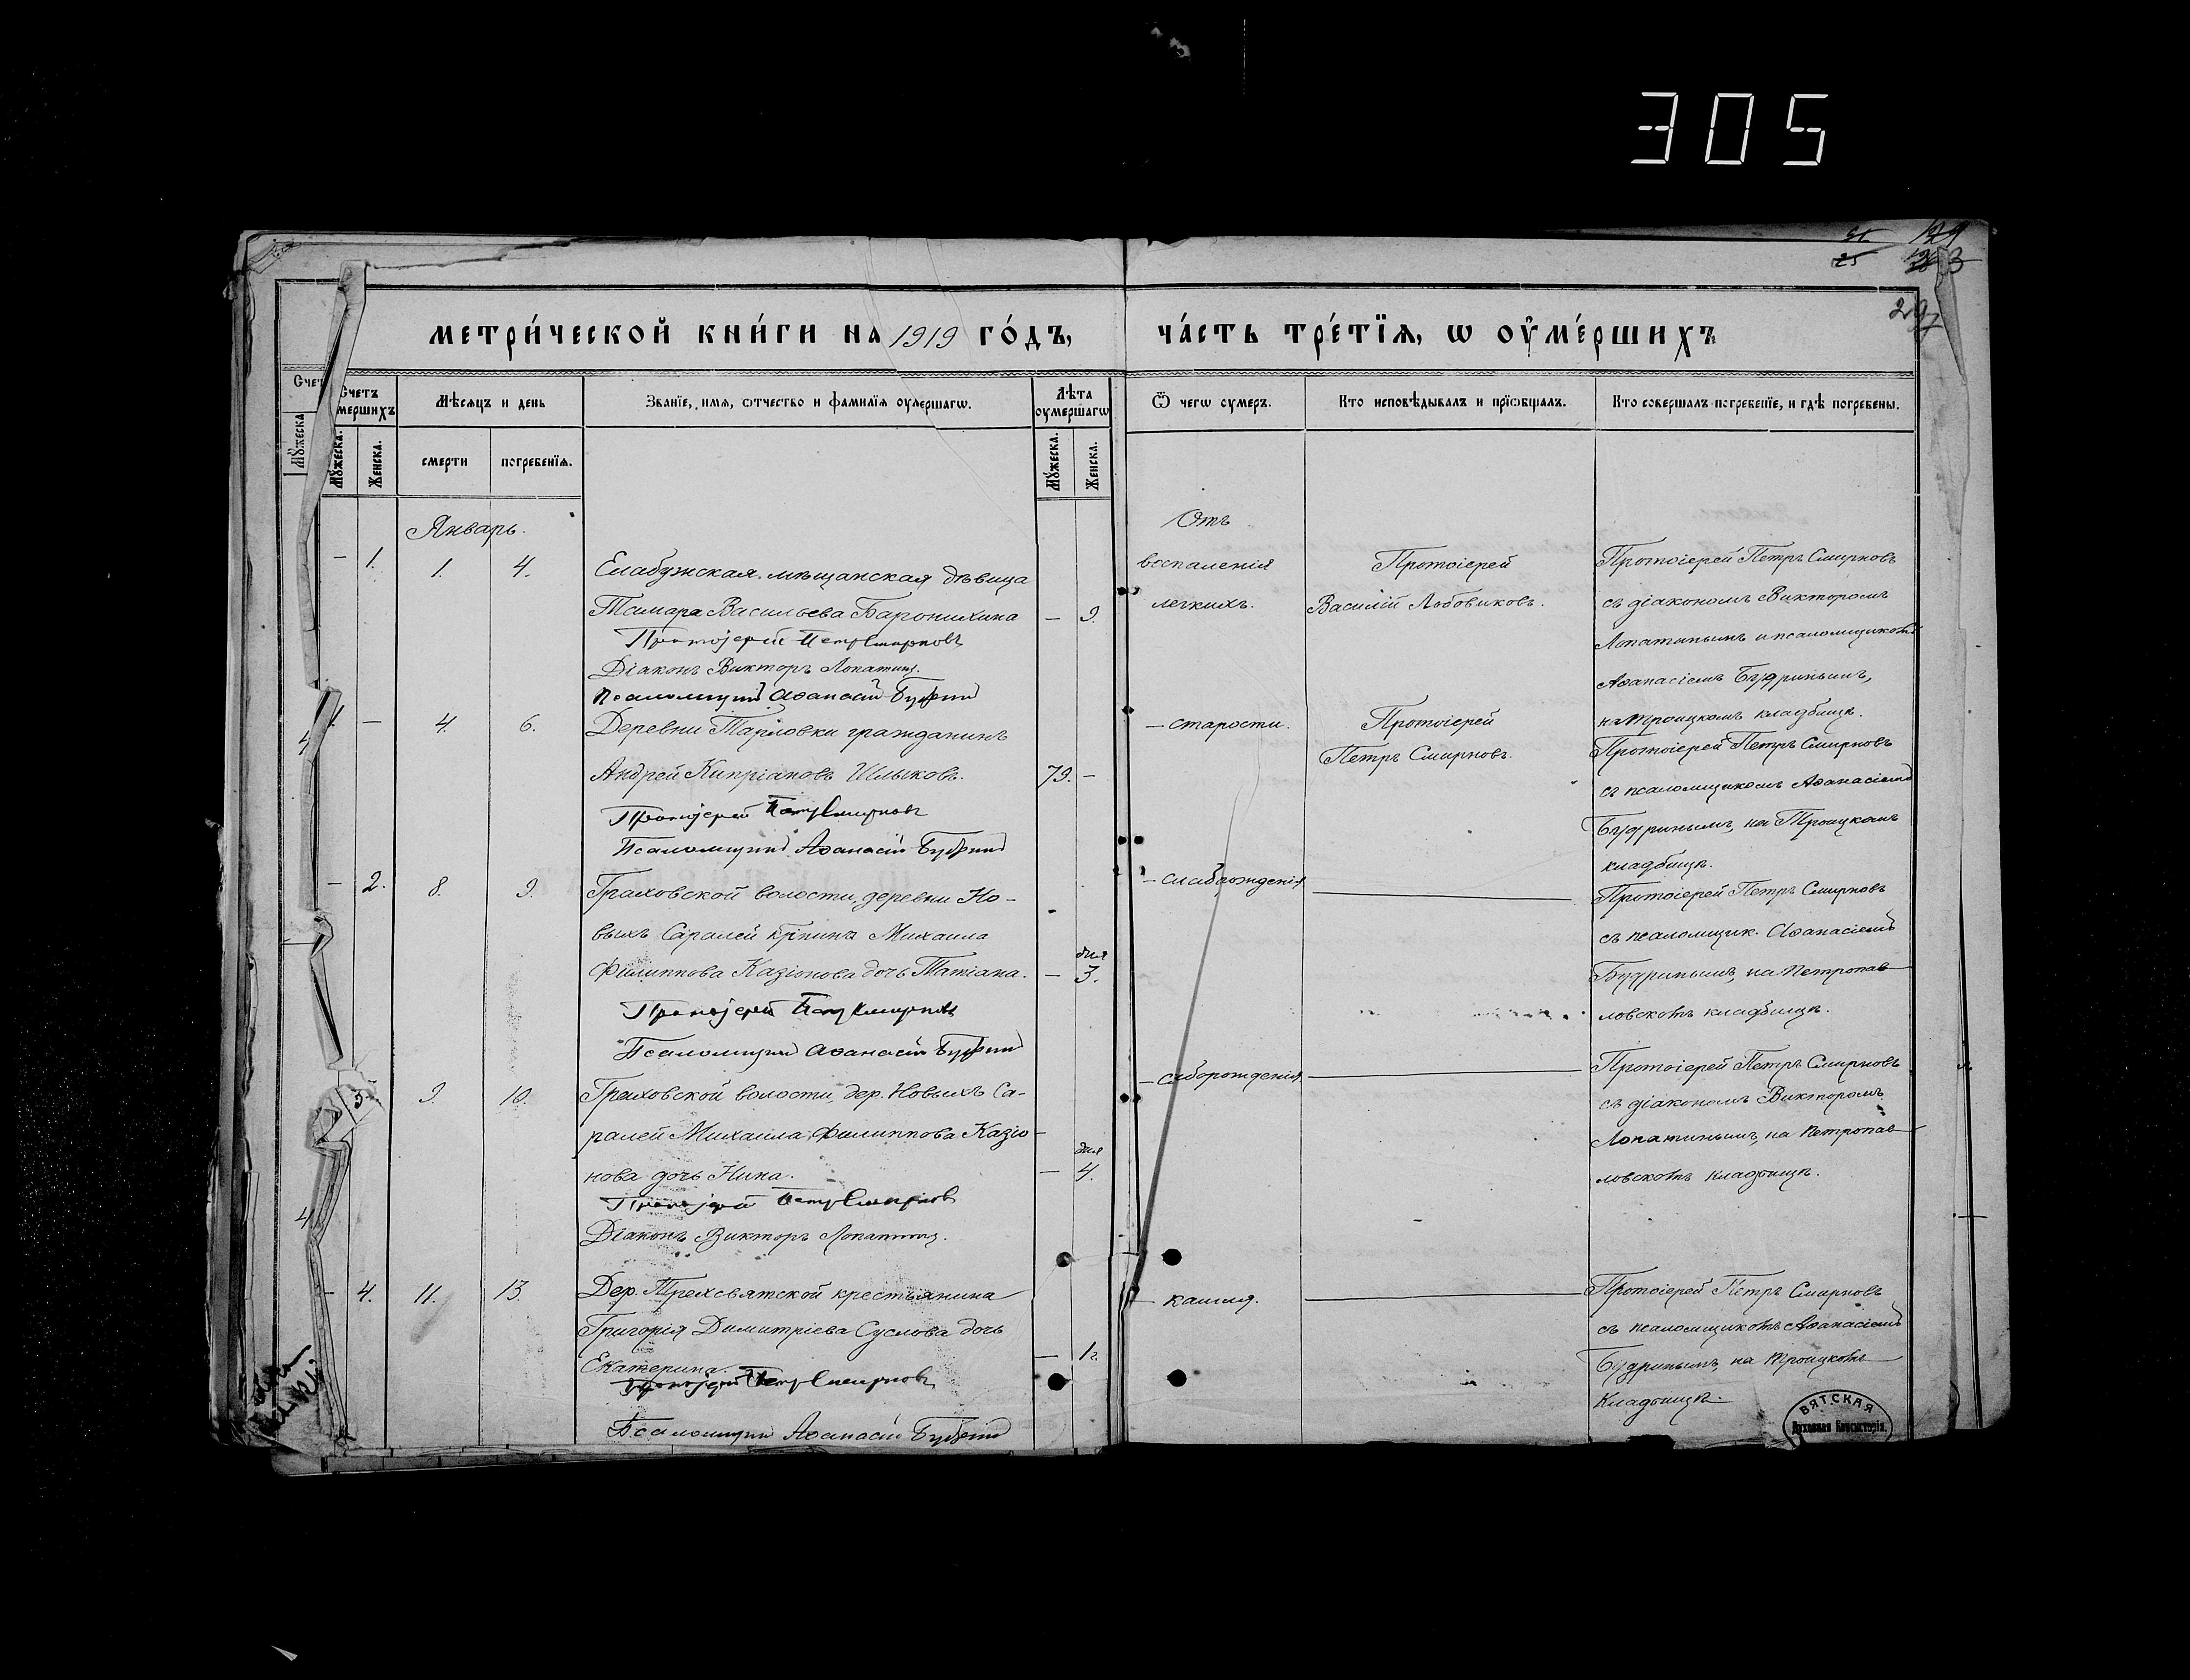 305
297
МЕТРИ́ЧЕСКОЙ КНИ́ГИ НА 1919 ГО́ДЪ,
ЧА́СТЬ ТРЕ́ТЇЯ, Ѡ ОУ҆МЕ́РШИХЪ
Счетъ умершихъ
Мѣсяцъ и день
Званїе, имя, ѡтчество и фамилїя оумершагѡ.
Лѣта оумершагѡ
Ѿ чегѡ оумеръ.
Кто исповѣдывалъ и прїѡбщалъ.
Кто совершалъ погребенїе, и гдѣ погребены.
Мꙋжеска.
Женска.
смерти
погребенїя.
Мꙋжеска.
Женска.
Январь.
— 1. 1. 4.
Елабужская мѣщанская дѣвица
Тамара Васильева Баронихина — 9.
Протоіерей Петръ Смирновъ
Діаконъ Викторъ Лопатин.
Псаломщикъ Аѳанасій Будрин
Отъ
воспаленія
легкихъ.
Протоіерей
Василій Лобовиковъ.
Протоіерей Петръ Смирновъ
съ діакономъ Викторомъ
Лопатинымъ и псаломщикомъ
Аѳанасіемъ Будринымъ,
на Троицкомъ кладбищѣ.
1 — 4. 6.
Деревни Тарловки гражданинъ
Андрей Кипріановъ Шлыковъ. 79. —
Протоіерей Петръ Смирновъ
Псаломщикъ Аѳанасій Будрин
— старости.
Протоіерей
Петръ Смирновъ.
Протоіерей Петръ Смирновъ
съ псаломщикомъ Аѳанасіемъ
Будринымъ, на Троицкомъ
кладбищѣ.
— 2. 8. 9.
Граховской волости, деревни Но-
выхъ Саралей крнина Михаила
Филиппова Казіонова дочь Татіана. — дня 3.
Протоіерей Петръ Смирновъ
Псаломщикъ Аѳанасій Будрин
— слаборожденія
Протоіерей Петръ Смирновъ
съ псаломщик. Аѳанасіемъ
Будринымъ, на Петропав-
ловскомъ кладбищѣ.
3. 9. 10.
Граховской волости, дер. Новыхъ Са-
ралей Михаила Филиппова Казіо-
нова дочь Нина. — дня 4.
Протоіерей Петръ Смирновъ
Діаконъ Викторъ Лопатин.
— слборожденія
Протоіерей Петръ Смирновъ
съ діакономъ Викторомъ
Лопатинымъ, на Петропав-
ловскомъ кладбищѣ.
— 4. 11. 13.
Дер. Трехсвятской крестьянина
Григорія Димитріева Суслова дочь
Екатерина. — 1 г.
Протоіерей Петръ Смирновъ
Псаломщикъ Аѳанасій Будрин
— кашля.
Протоіерей Петръ Смирновъ
съ псаломщикомъ Аѳанасіемъ
Будринымъ, на Троицкомъ
кладбищѣ.
ВЯТСКАЯ
Духовная Консисторія.